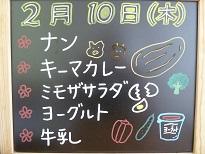 2月10日(木)
ナン
キーマカレー
ミモザサラダ
ヨーグルト
牛乳